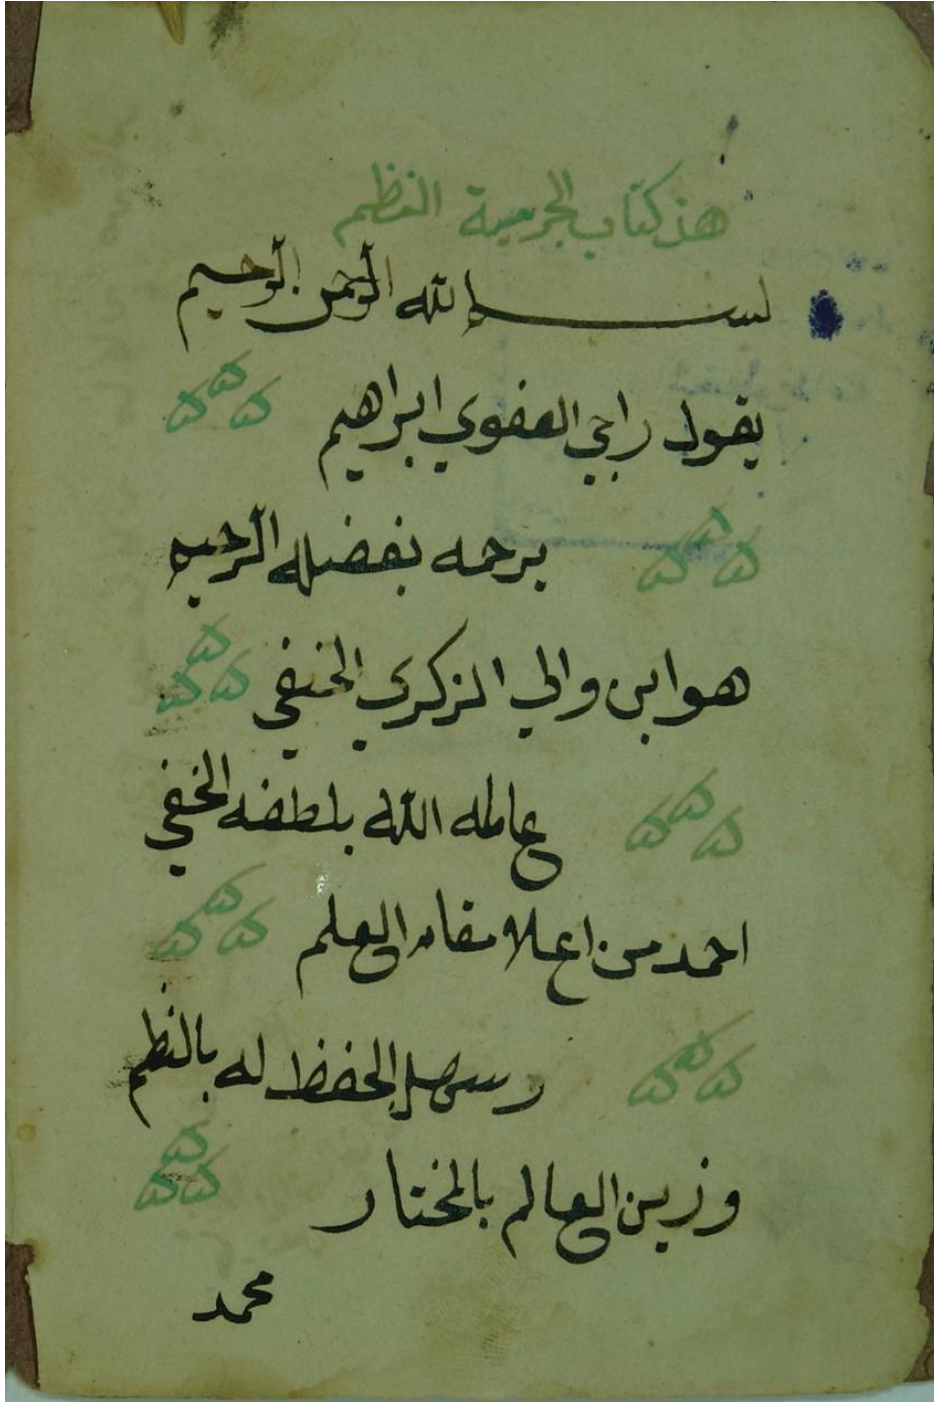 هذ كتاب الجرمية النظم
بسم الله الرحمن الرحيم
يقول راجي العفوي ابراهيم
يرحمه بفضله الرحيم
هو ابن والي الزكري الحنفي
عامله الله بلطفه الخفي
احمد من اعلا مقام العلم
وسهل الحفظ له بالنظم
وزين العالم بالمختار
محمد